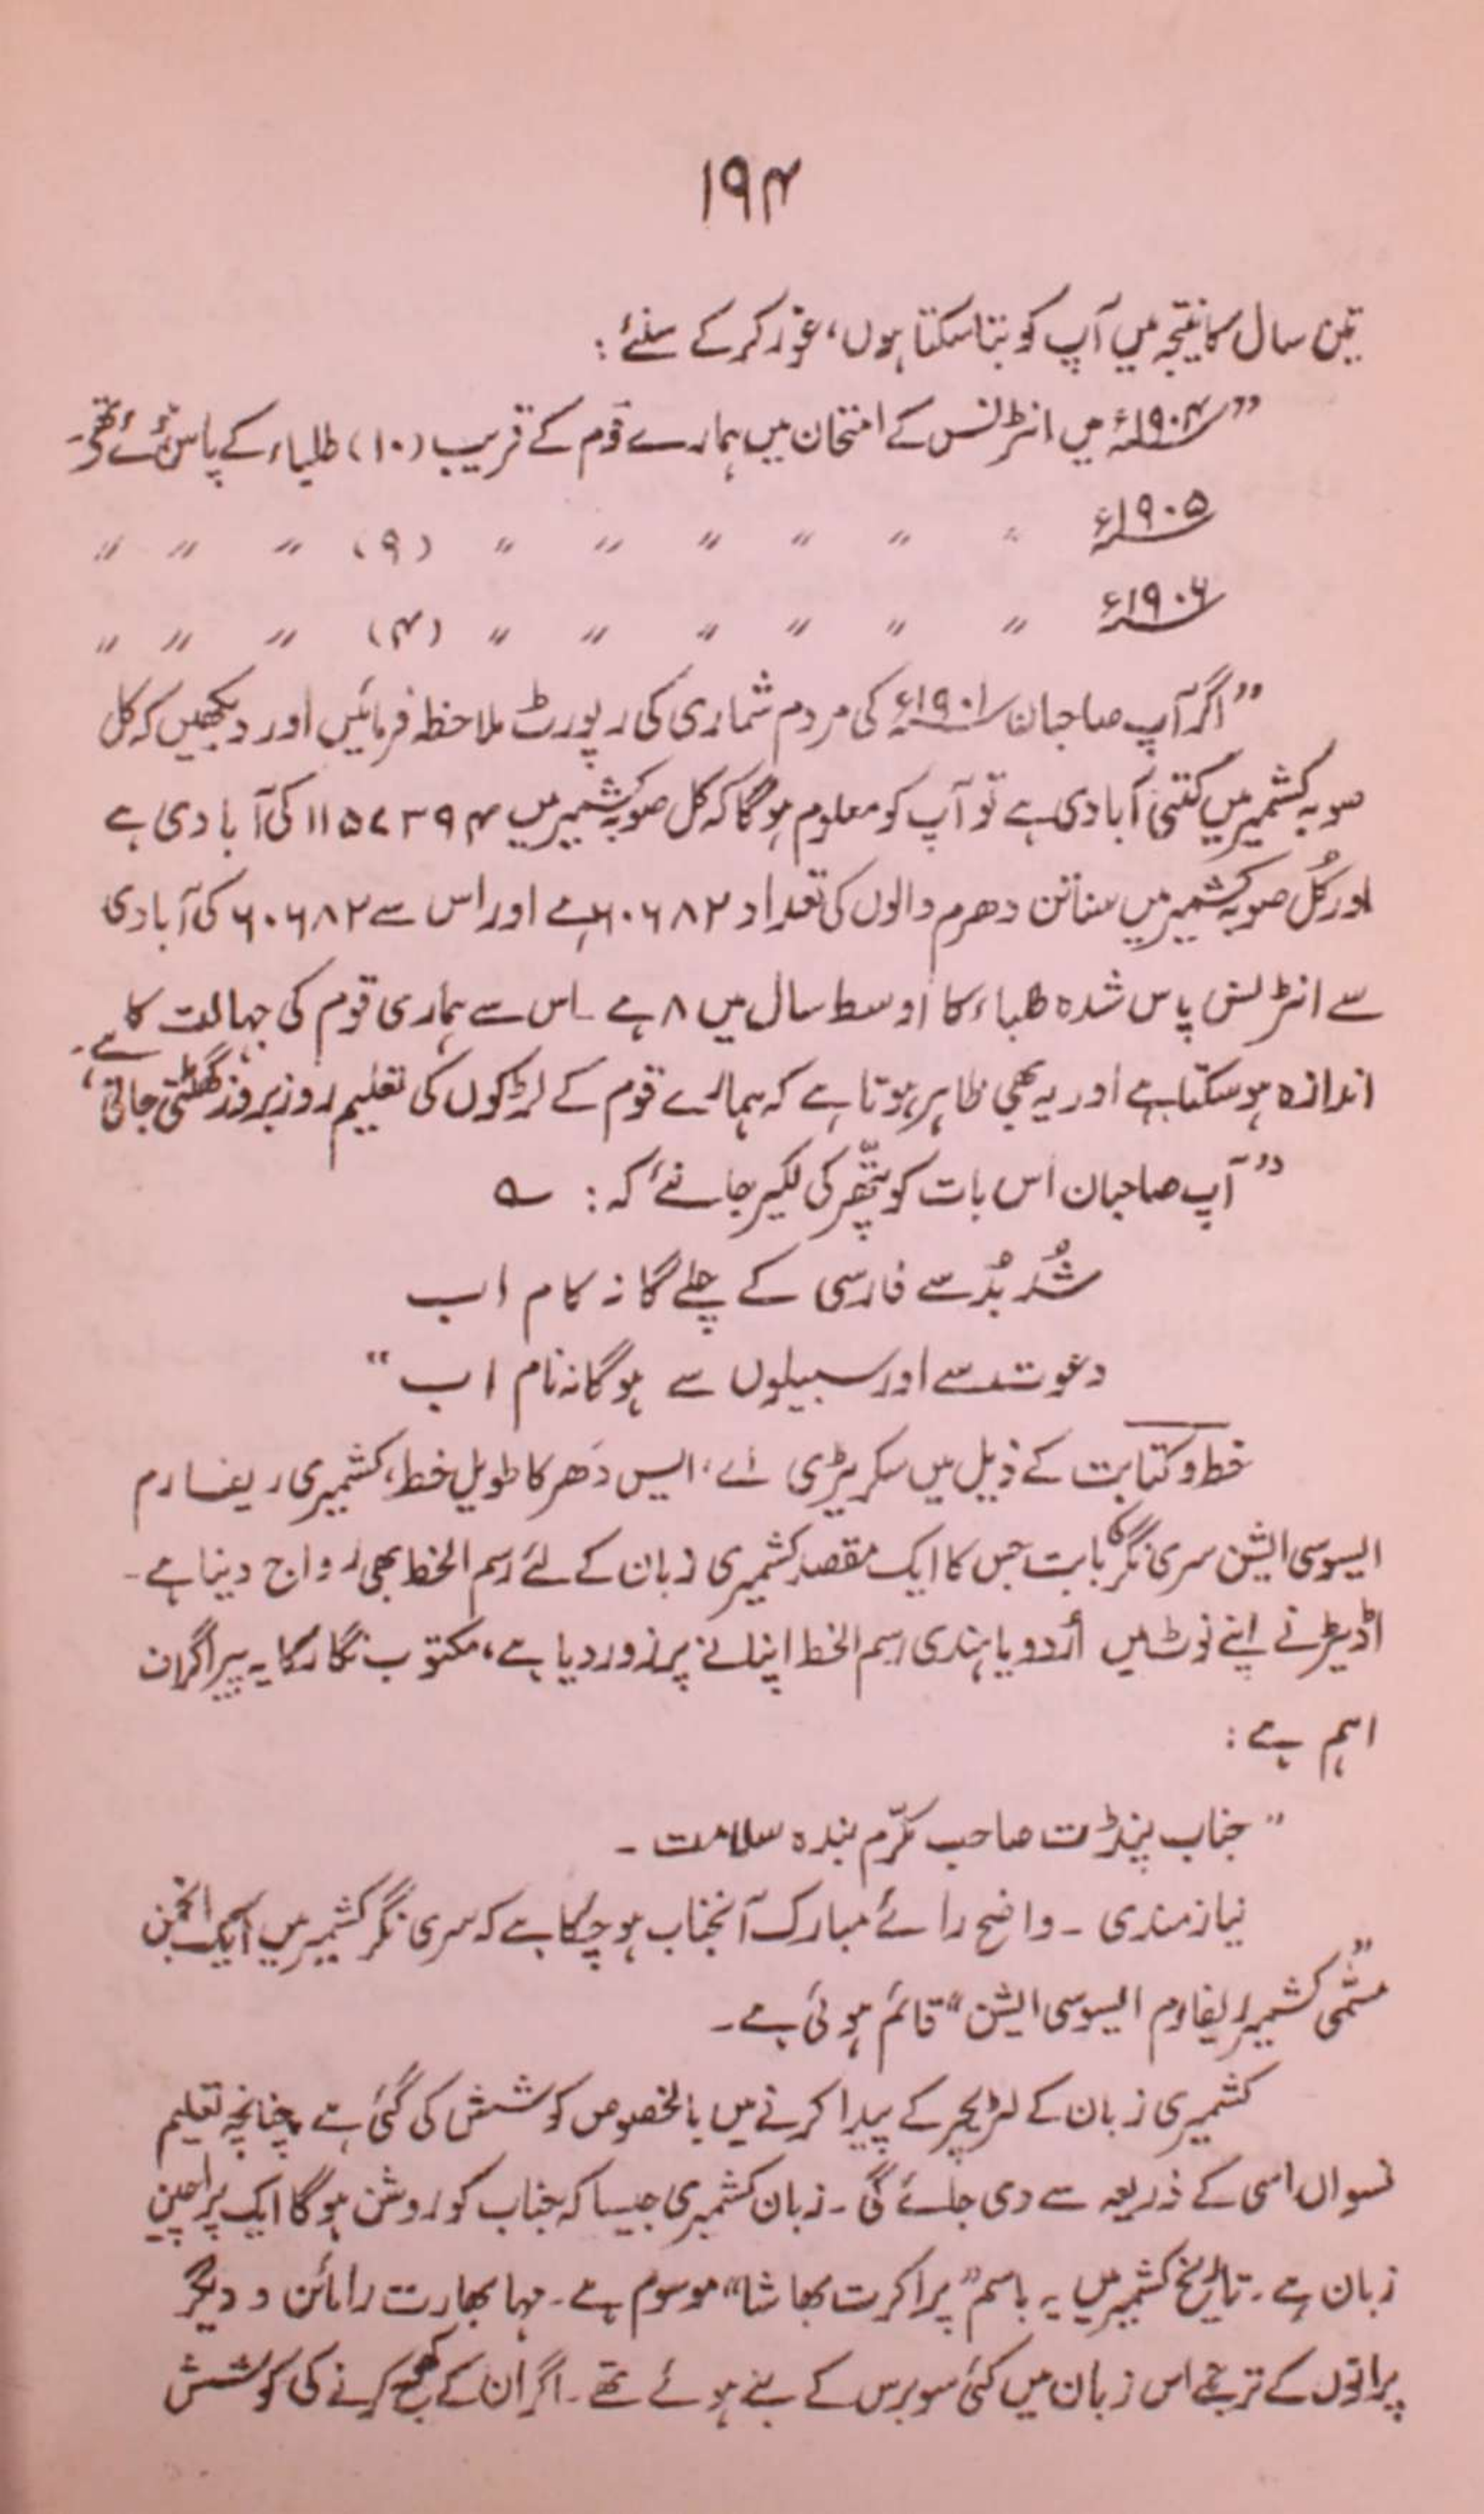 ۱۹۴
تین سال کا نتیجہ میں آپ کو بتا سکتا ہوں، غور کر کے سنئے:
”۱۹۰۴ء میں انٹرنس کے امتحان میں ہمارے قوم کے قریب (۱۰) طلباء کے پاس ہوئے تھے۔
۱۹۰۵ء ” ” ” ” ” ” (۹) ” ” ”
۱۹۰۶ء ” ” ” ” ” ” (۴) ” ” ”
”اگر آپ صاحبان ۱۹۰۱ء کی مردم شماری کی رپورٹ ملاحظہ فرمائیں اور دیکھیں کہ کل
صوبہ کشمیر میں کتنی آبادی ہے تو آپ کو معلوم ہوگا کہ کل صوبہ کشمیر میں ۱۱۵۷۳۹۴ کی آبادی ہے
اور کُل صوبہ کشمیر میں سناتن دھرم والوں کی تعداد ۶۰۶۸۲ ہے اور اس سے ۶۰۶۸۲ کی آبادی
سے انٹرنس پاس شدہ طلباء کا اوسط سال میں ۸ ہے ۔ اس سے ہماری قوم کی جہالت کا
اندازہ ہو سکتا ہے اور یہ بھی ظاہر ہوتا ہے کہ ہمارے قوم کے لڑکوں کی تعلیم روز بروز گھٹتی جاتی ہے۔
”آپ صاحبان اس بات کو پتّھر کی لکیر جانئے کہ: ؎
شُد بُد سے فارسی کے چلے گا نہ کام اب
دعوت سے اور سبیلوں سے ہوگا نہ نام اب“
خط و کتابت کے ذیل میں سکریٹری اے، ایس دَھر کا طویل خط، کشمیری ریفارم
ایسوسی ایشن سری نگر کا بابت جس کا ایک مقصد کشمیری زبان کے لئے رسم الخط بھی رواج دینا ہے۔
اڈیٹر نے اپنے نوٹ میں اُردو یا ہندی رسم الخط اپنانے پر زور دیا ہے، مکتوب نگار کا یہ پیراگراف
اہم ہے:
”جناب پنڈت صاحب مکرّم بندہ سلامت ۔
نیازمندی ۔ واضح رائے مبارک آنجناب ہو چکا ہے کہ سری نگر کشمیر میں ایک انجمن
مسمّٰی ”کشمیر ریفارم ایسوسی ایشن“ قائم ہوئی ہے۔
کشمیری زبان کے لٹریچر کے پیدا کرنے میں بالخصوص کوشش کی گئی ہے چنانچہ تعلیم
نسواں اسی کے ذریعہ سے دی جائے گی ۔ زبان کشمیری جیسا کہ جناب کو روشن ہوگا ایک پراچین
زبان ہے ۔ تاریخ کشمیر میں یہ باسم ”پراکرت بھاشا“ موسوم ہے ۔ مہابھارت رامائن و دیگر
پرانوں کے ترجمے اس زبان میں کئی سو برس کے بنے ہوئے تھے ۔ اگر ان کے جمع کرنے کی کوشش